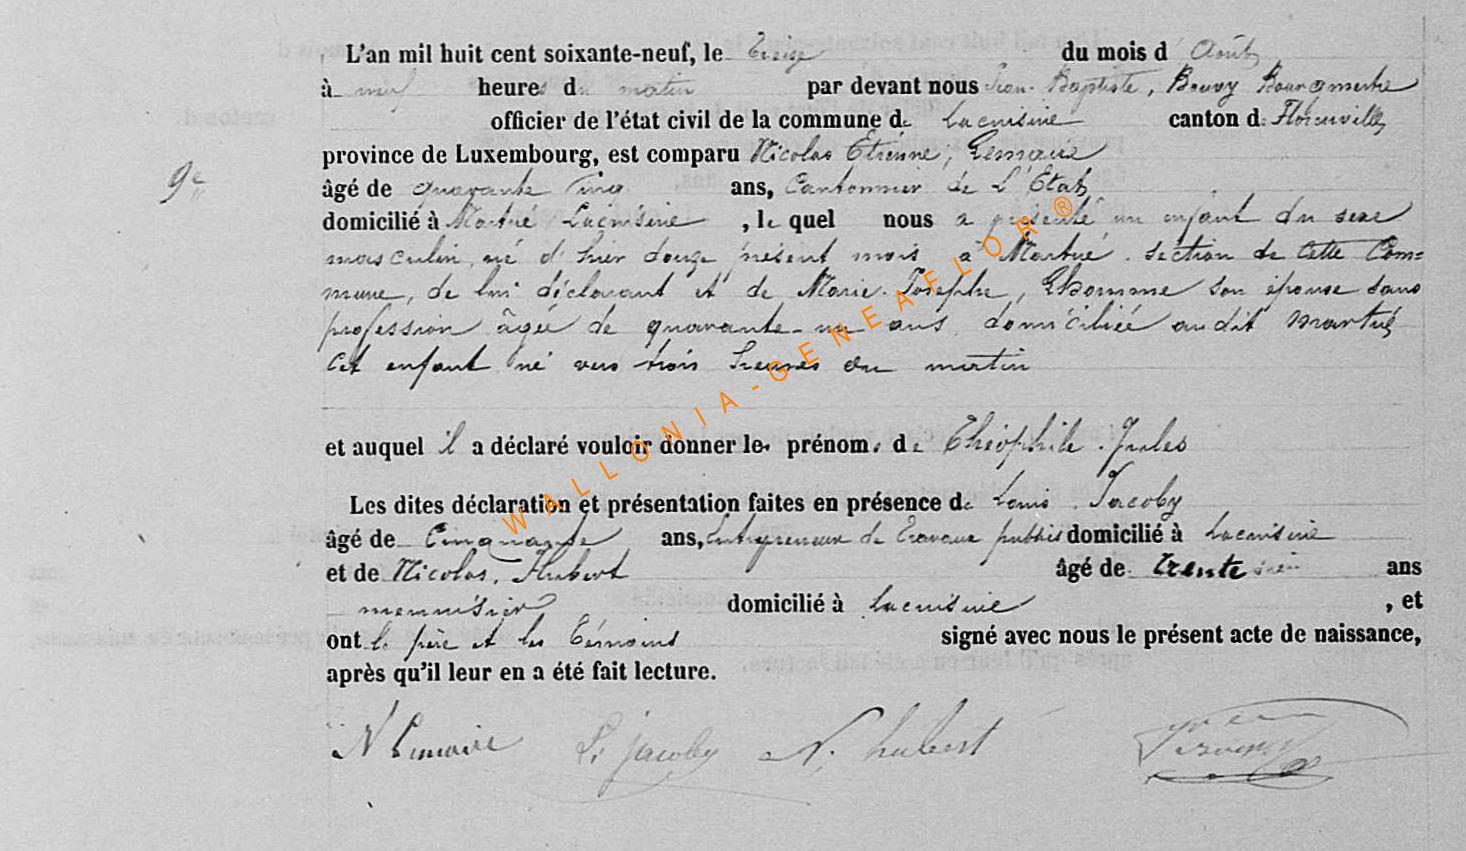 L'an mil huit cent soixante-neuf, le treize du mois d'Août
à neuf heures du matin par devant nous Jean-Baptiste, Bouvy Bourgmestre
officier de l'état civil de la commune de Lacuisine canton de Florenville
province de Luxembourg, est comparu Nicolas Etienne, Lemaire
9e
âgé de quarante cinq ans, Cantonnier de L'Etat
domicilié à Martué Lacuisine, le quel nous a présenté un enfant du sexe
masculin, né d'hier douze présent mois, à Martué. section de cette Com=
mune, de lui déclarant et de Marie-Josephe, Lhomme son épouse sans
profession âgée de quarante-un ans domiciliée audit Martué
Cet enfant né vers trois heures du matin
et auquel il a déclaré vouloir donner les prénoms de Théophile. Jules
Les dites déclaration et présentation faites en présence de Louis. Jacoby
âgé de Cinquante ans, Entrepreneur de Travaux publics domicilié à Lacuisine
et de Nicolas, Hubert âgé de trente ans
menuisier domicilié à Lacuisine, et
ont le père et les témoins signé avec nous le présent acte de naissance,
après qu'il leur en a été fait lecture.
N Lemaire L. jacoby N. hubert
WALLONIA-GENEAFLOR®